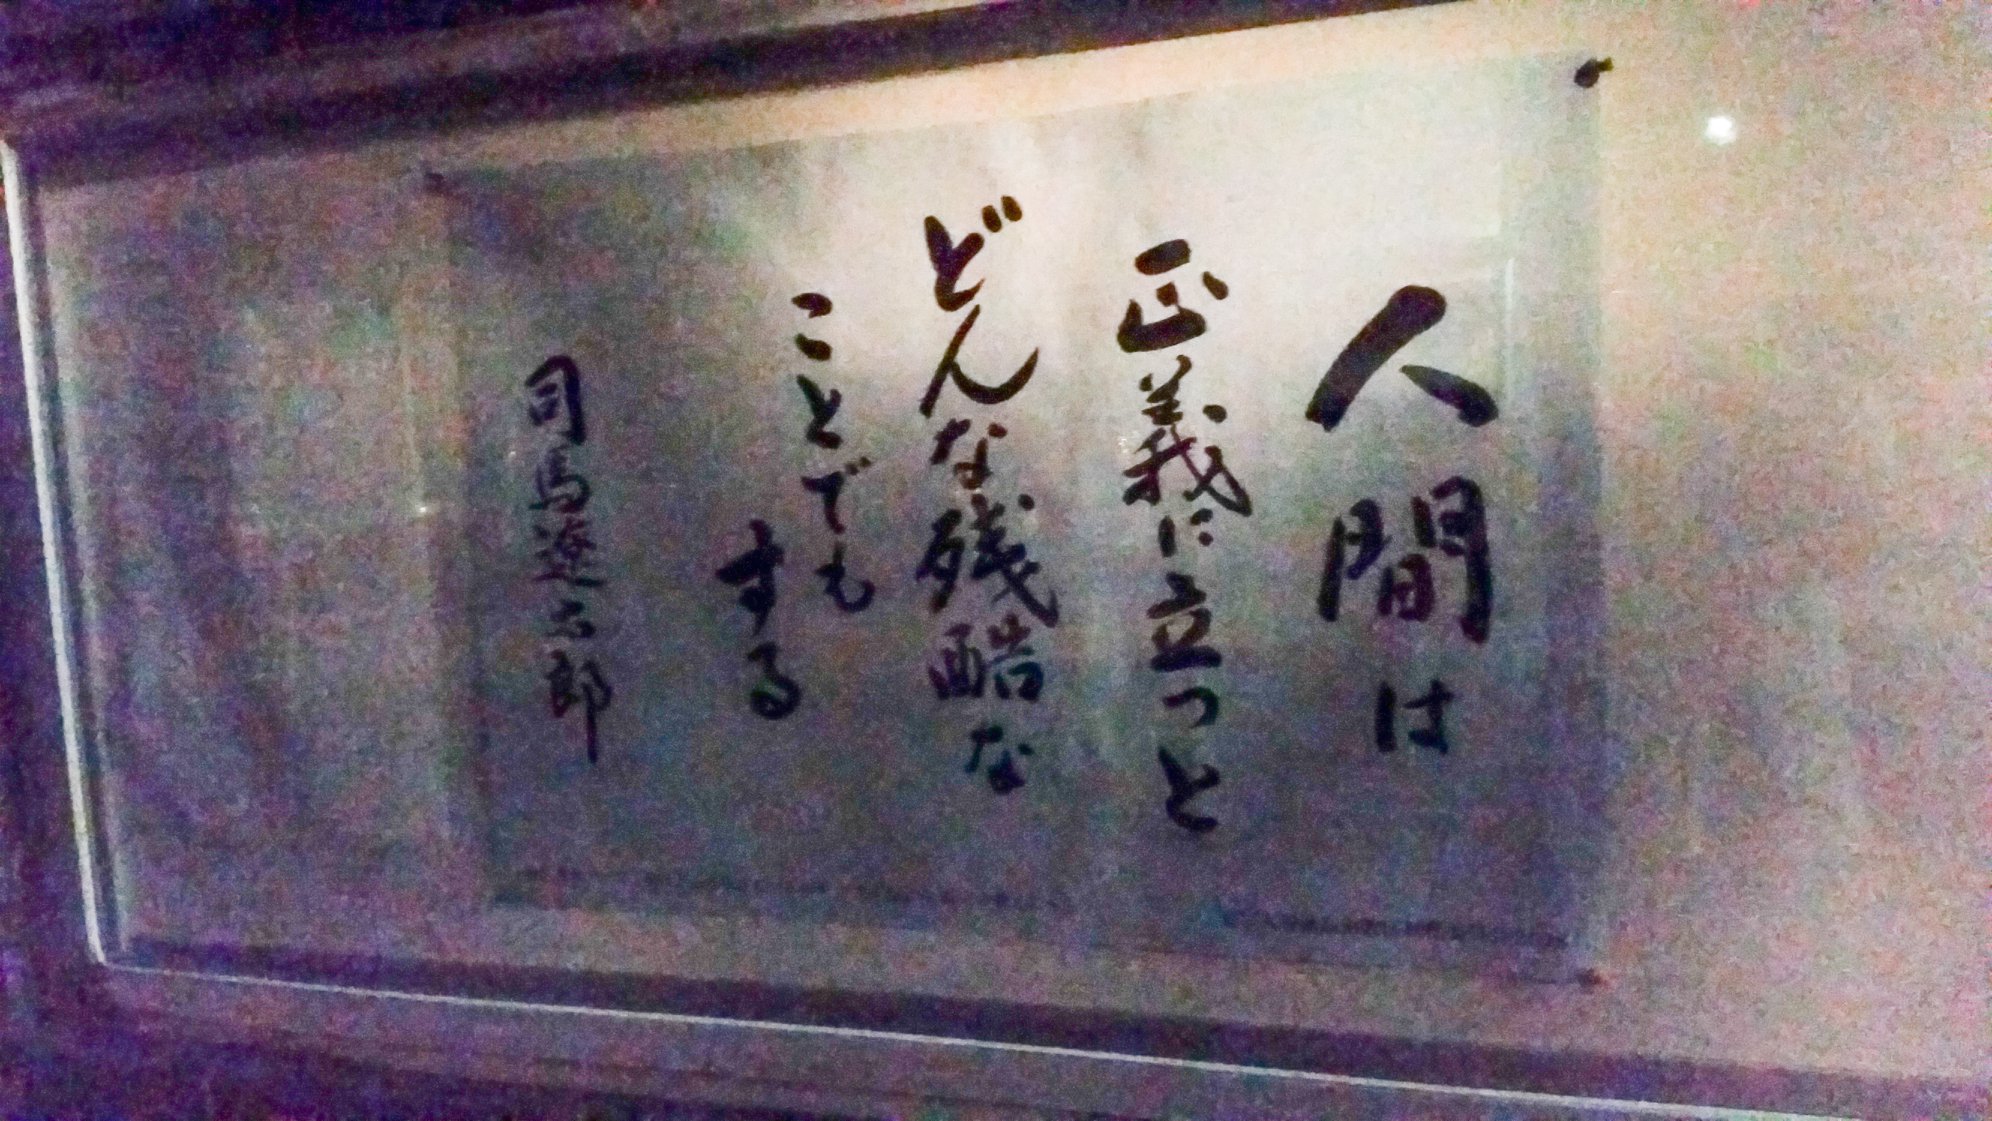 人間は
正義に立つと
どんな残酷な
ことでも
する
司馬遼太郎